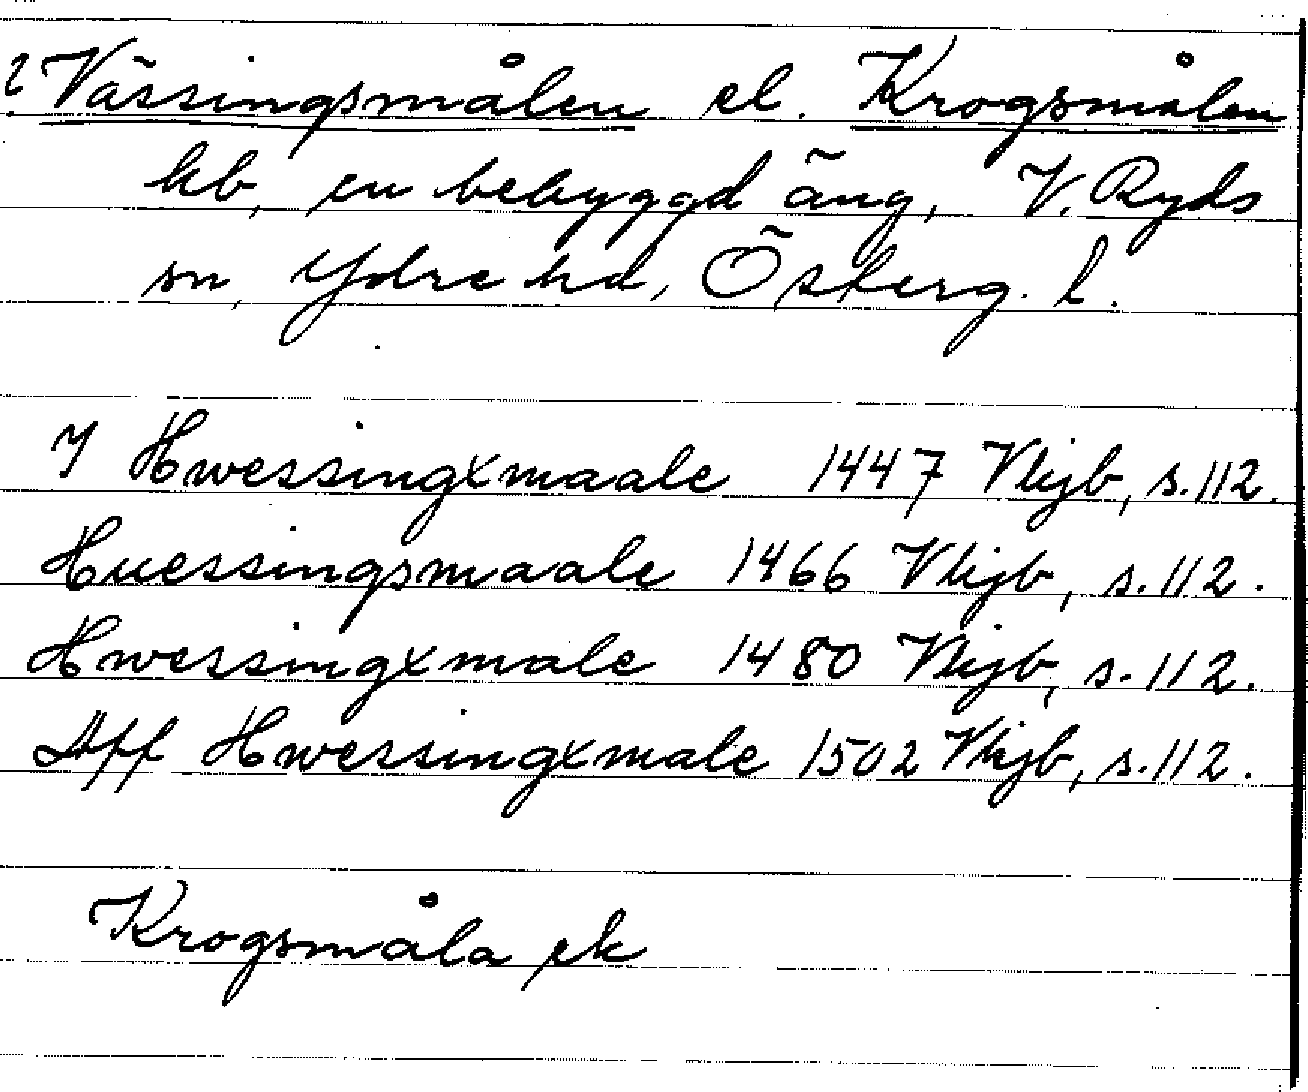 Vässingsmålen el. Krogsmålen
hb, en bebyggd äng, V. Ryds
sn, Ydre hd, Österg. l.
I Hwessingxmaale 1447 Vkjb, s. 112.
Huessingsmaale 1466 Vkjb, s. 112.
Hwessingxmale 1480 Vkjb, s. 112.
Aff Hwessingxmale 1502 Vkjb, s. 112.
Krogsmåla ek